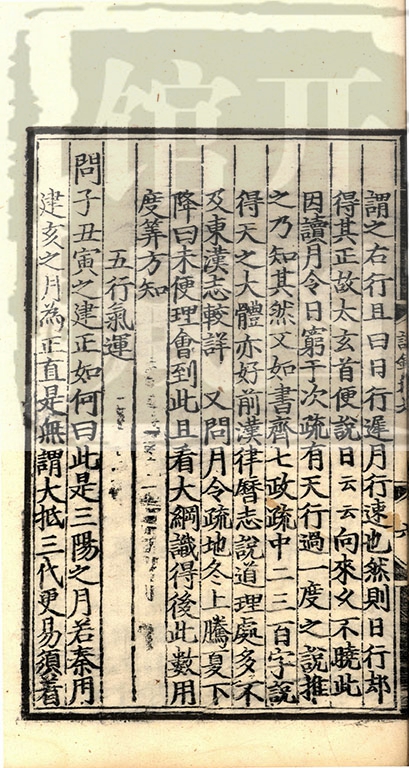 謂之右行且曰日行遲月行速也然則日行却
得其正故太玄首便說日云云向來久不曉此
因讀月令日窮于次疏有天行過一度之說推
之乃知其然又如書齊七政疏中二三百字說
得天之大體亦好前漢律曆志說道理處多不
及東漢志較詳　又問月令疏地冬上騰夏下
降曰未便理會到此且看大綱識得後此數用
度筭方知
五行氣運
問子丑寅之建正如何曰此是三陽之月若秦用
建亥之月為正直是無謂大抵三代更易須着